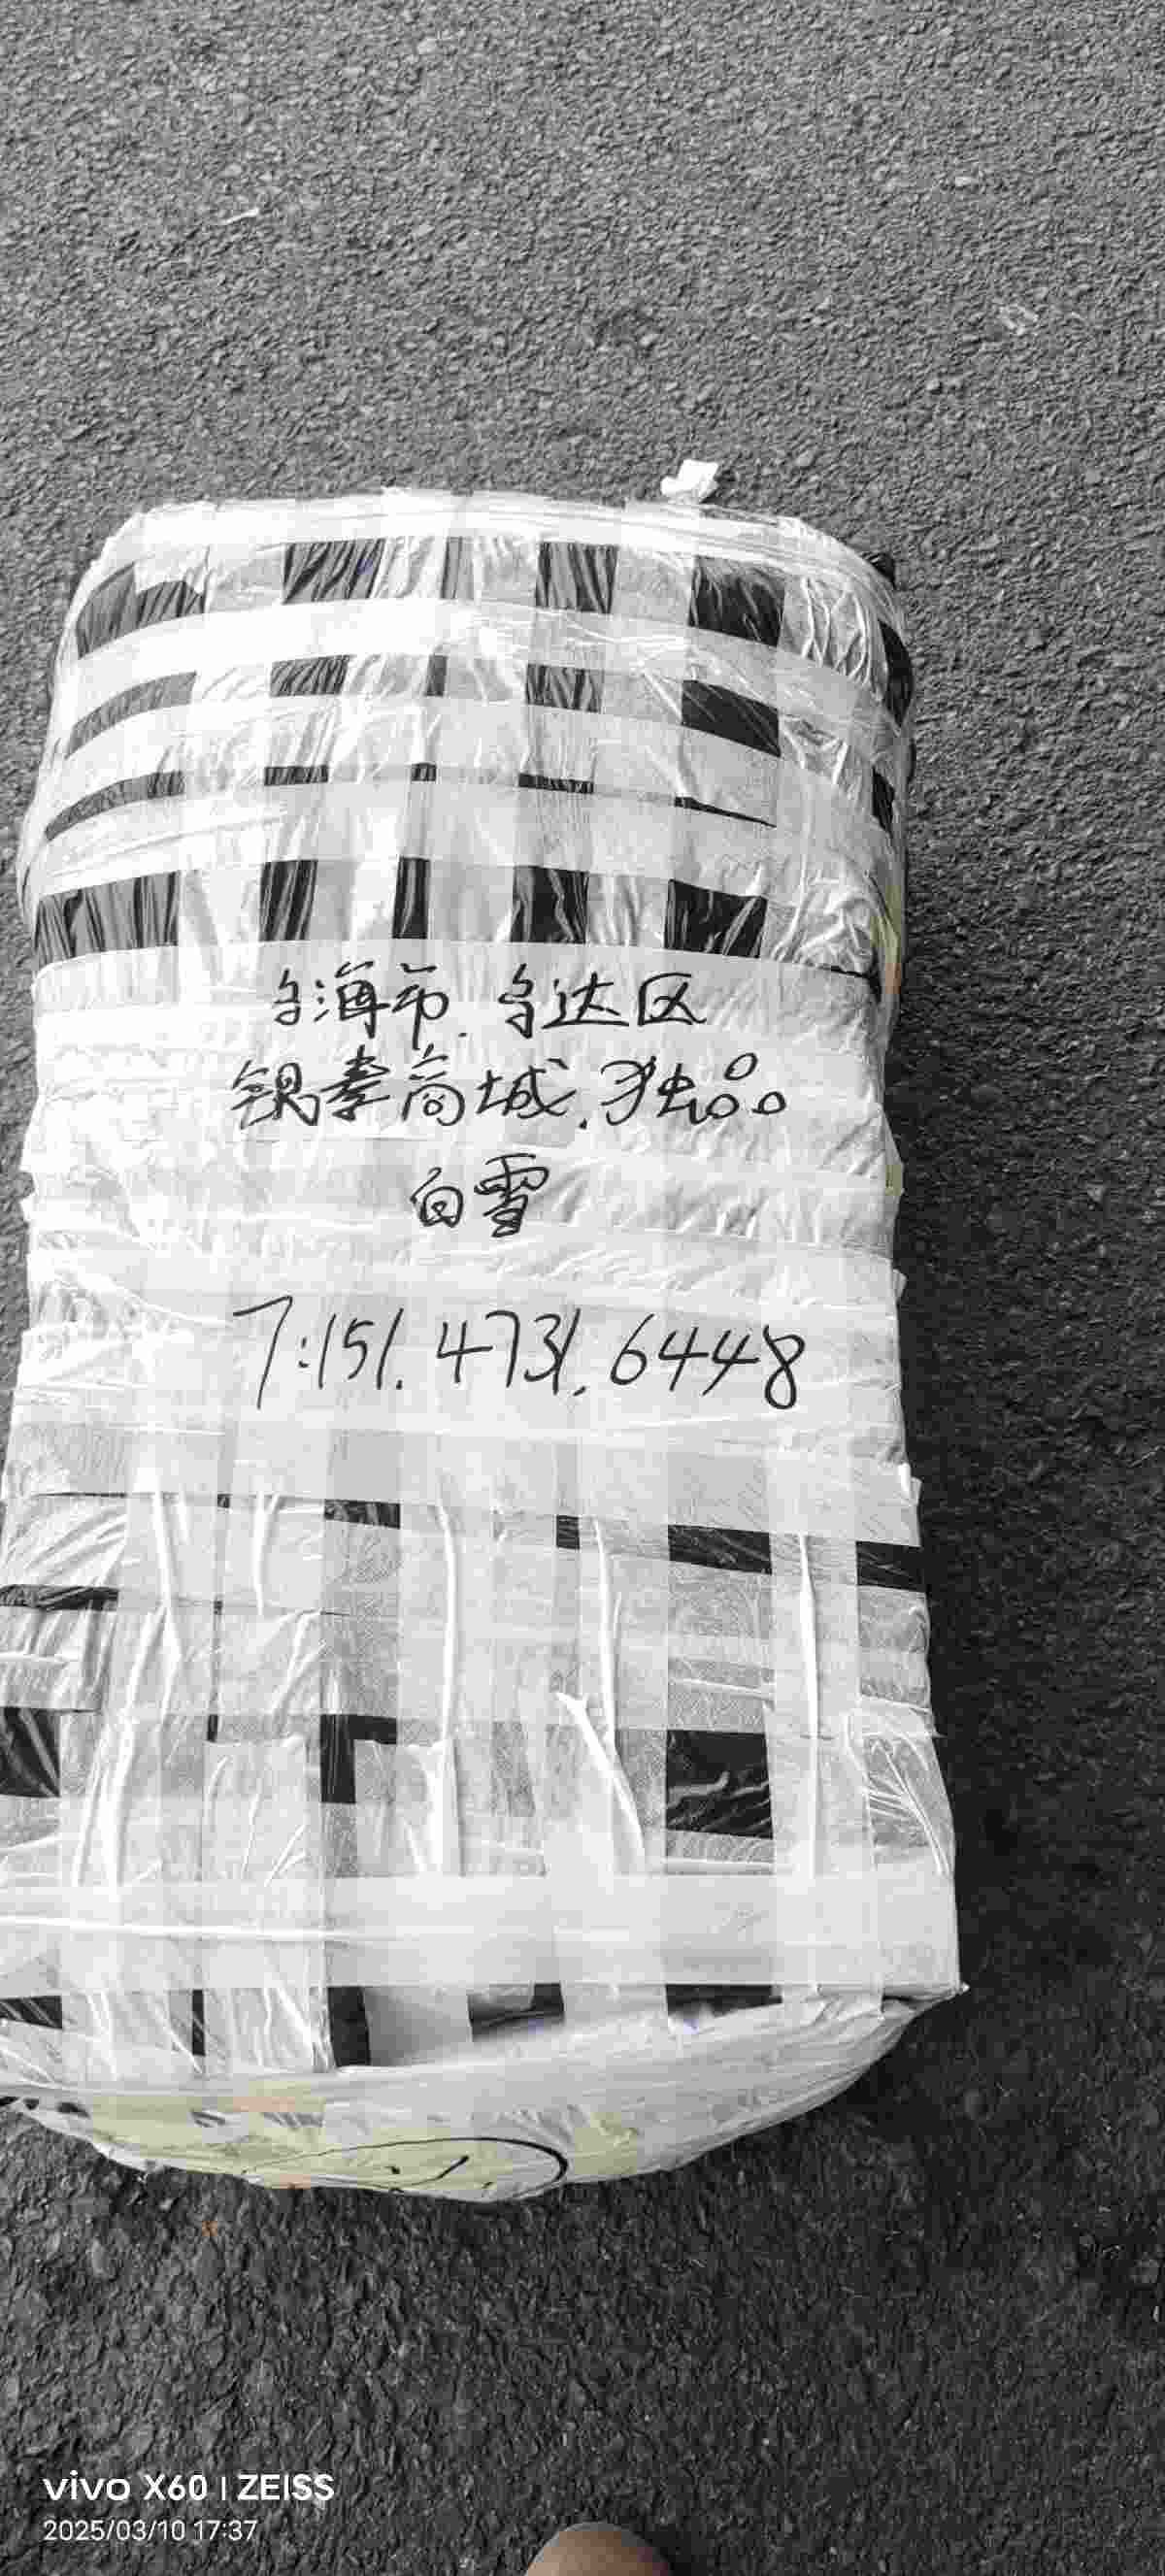 乌海市.乌达区
银泰商城.独品
白雪
7:151.4731.6448
vivo X60 | ZEISS
2025/03/10 17:37